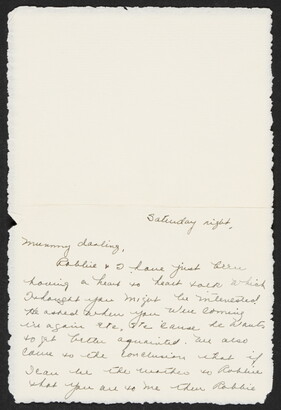 Saturday night,
Mummy darling,
Robbie & I have just been
having a heart to heart talk which
I thought you might be interested
He asked when you were coming
up again etc, etc cause he wants
to get better aquainted. We also
came to the conclusion that if
I can be the mother to Robbie
that you are to me then Robbie